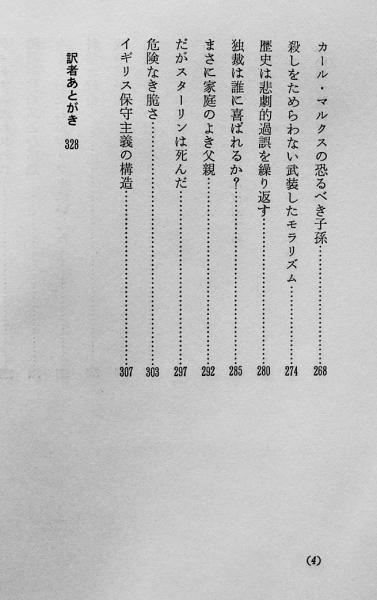 カール・マルクスの恐るべき子孫……………………268
殺しをためらわない武装したモラリズム……………274
歴史は悲劇的過誤を繰り返す…………………………280
独裁は誰に喜ばれるか?………………………………285
まさに家庭のよき父親…………………………………292
だがスターリンは死んだ………………………………297
危険なき脆さ……………………………………………303
イギリス保守主義の構造………………………………307
訳者あとがき 328
(4)